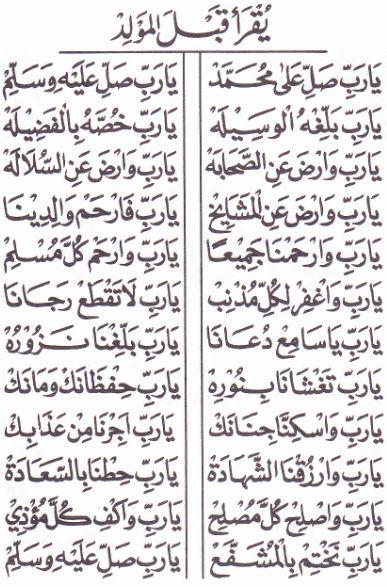 يُقْرَأُ قَبْلَ المَوْلِدِ
يَارَبِّ صَلِّ عَلَى مُحَمَّدْ يَارَبِّ صَلِّ عَلَيْهِ وَسَلِّمْ
يَارَبِّ بَلِّغْهُ الْوَسِيْلَهْ يَارَبِّ خُصَّهُ بِالْفَضِيْلَهْ
يَارَبِّ وَارْضَ عَنِ الصَّحَابَهْ يَارَبِّ وَارْضَ عَنِ السُّلَالَهْ
يَارَبِّ وَارْضَ عَنِ الْمَشَايِخْ يَارَبِّ فَارْحَمْ وَالِدِيْنَا
يَارَبِّ وَارْحَمْنَا جَمِيْعًا يَارَبِّ وَارْحَمْ كُلَّ مُسْلِمْ
يَارَبِّ وَاغْفِرْ لِكُلِّ مُذْنِبْ يَارَبِّ لَا تَقْطَعْ رَجَانَا
يَارَبِّ يَاسَامِعْ دُعَانَا يَارَبِّ بَلِّغْنَا نَزُوْرُهْ
يَارَبِّ تَغْشَانَا بِنُوْرِهْ يَارَبِّ حِفْظَانَكْ وَمَانَكْ
يَارَبِّ وَاسْكِنَّا جِنَانَكْ يَارَبِّ اَجِرْنَا مِنْ عَذَابِكْ
يَارَبِّ وَارْزُقْنَا الشَّهَادَةْ يَارَبِّ حِطْنَا بِالسَّعَادَةْ
يَارَبِّ وَاصْلِحْ كُلَّ مُصْلِحْ يَارَبِّ وَاكْفِ كُلَّ مُؤْذِيْ
يَارَبِّ نَخْتِمْ بِالْمُشَفَّعْ يَارَبِّ صَلِّ عَلَيْهِ وَسَلِّمْ